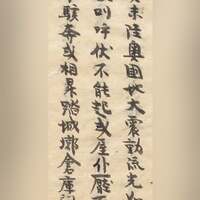 未陸奥國地大震動流光如
叫呼伏不能起或屋仆壓
駭奔或相昇踏城郭倉庫